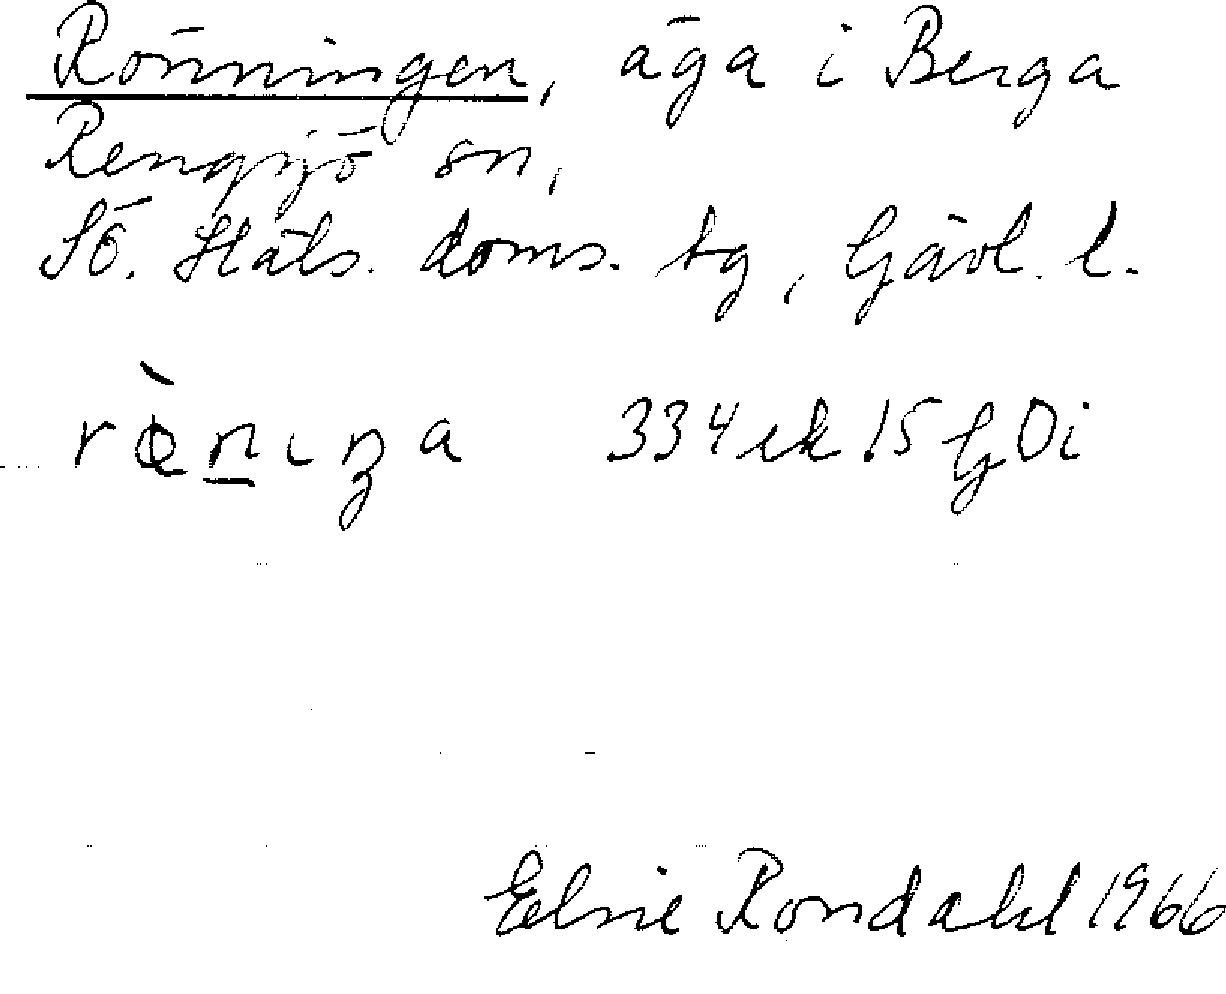 Rönningen, äga i Berga
Rengsjö sn,
Sö. Häls. doms. tg, Gävl. l.
334 ek 15 G Di
Elsie Rondahl 1966